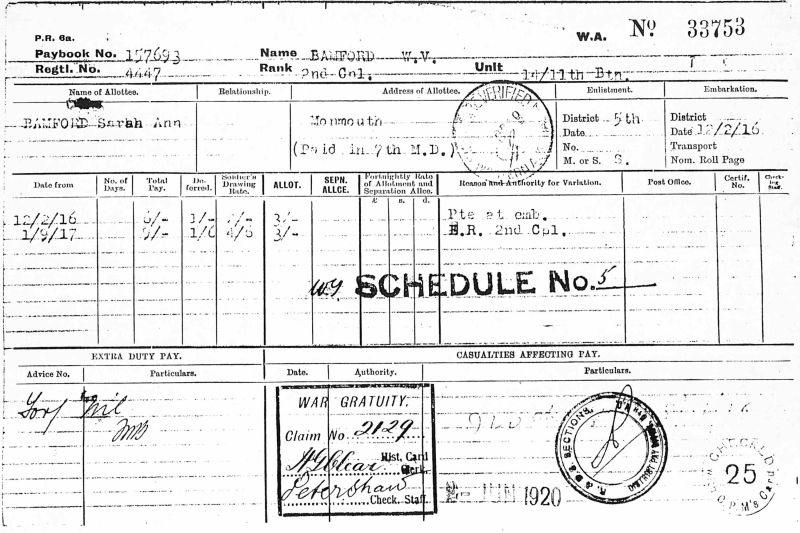 P.R. 6a.
W.A. No 33753
Paybook No. 157693 Name BAMFORD W.V.
Regtl. No. 4447 Rank 2nd Cpl. Unit 14/11th Btn.
Name of Allottee. Relationship. Address of Allottee. Enlistment. Embarkation.
BAMFORD Sarah Ann Monmouth District 5th District
Date Date 12/2/16
(Paid in 7th M.D.) No. Transport
M. or S. S. Nom. Roll Page
VERIFIED
Date from No. of Days. Total Pay. De-ferred. Soldier's Drawing Rate. ALLOT. SEPN. ALLCE. Fortnightly Rate of Allotment and Separation Allce. Reason and Authority for Variation. Post Office. Certif. No. Check-ing Staff.
£ s. d.
12/2/16 6/- 1/- 3/- Pte at emb.
1/9/17 9/- 1/6 4/6 3/- E.R. 2nd Cpl.
SCHEDULE No. 5
EXTRA DUTY PAY. CASUALTIES AFFECTING PAY.
Advice No. Particulars. Date. Authority. Particulars.
nil
WAR GRATUITY.
Claim No 2129
Hist. Card
Clerk.
Check. Staff.
JUN 1920
SECTIONS.
DISTRICT PAY
CHECKED
25
D.P.M's Card